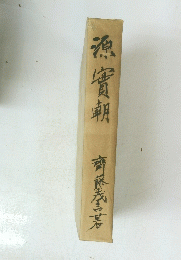 源實朝
齋藤茂吉著